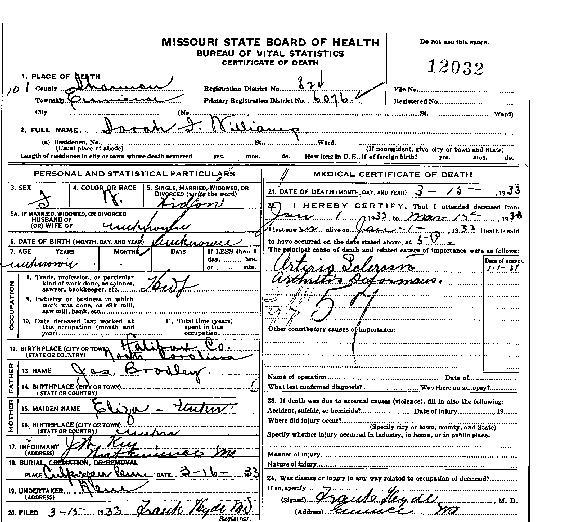 MISSOURI STATE BOARD OF HEALTH
BUREAU OF VITAL STATISTICS
CERTIFICATE OF DEATH
Do not use this space.
12032
1. PLACE OF DEATH
County Shannon Registration District No. 824 File No.
Township Eminence Primary Registration District No. 6076 Registered No.
City (No. St. Ward)
2. FULL NAME Sarah I. Williams
(a) Residence, No. St. Ward.
(Usual place of abode) (If nonresident, give city or town and State)
Length of residence in city or town where death occurred yrs. mos. ds. How long in U. S., if of foreign birth? yrs. mos. ds.
PERSONAL AND STATISTICAL PARTICULARS
3. SEX 4. COLOR OR RACE 5. SINGLE, MARRIED, WIDOWED, OR
DIVORCED (write the word)
F W.
5A. IF MARRIED, WIDOWED, OR DIVORCED
HUSBAND OF
(OR) WIFE OF unknown
6. DATE OF BIRTH (MONTH, DAY, AND YEAR) unknown
7. AGE YEARS MONTHS DAYS If LESS than 1
day, hrs.
or min.
unknown
OCCUPATION
8. Trade, profession, or particular
kind of work done, as spinner,
sawyer, bookkeeper, etc.
9. Industry or business in which
work was done, as silk mill,
saw mill, bank, etc.
10. Date deceased last worked at
this occupation (month and
year)
11. Total time (years)
spent in this
occupation
12. BIRTHPLACE (CITY OR TOWN) Halifax Co.
(STATE OR COUNTRY) North Carolina
FATHER
13. NAME Jas Bradley
14. BIRTHPLACE (CITY OR TOWN)
(STATE OR COUNTRY)
MOTHER
15. MAIDEN NAME Eliza -
16. BIRTHPLACE (CITY OR TOWN)
(STATE OR COUNTRY)
17. INFORMANT
(ADDRESS)
18. BURIAL, CREMATION, OR REMOVAL
PLACE DATE 3-16- 33
19. UNDERTAKER
(ADDRESS)
20. FILED 3-15 1933 Frank Hyde MD
Registrar
MEDICAL CERTIFICATE OF DEATH
21. DATE OF DEATH (MONTH, DAY, AND YEAR) 3-15- 1933
22. I HEREBY CERTIFY, That I attended deceased from
Jan 1 1933 to Mar 15 1933
I last saw h alive on Jan-1- 1933 Death is said
to have occurred on the date stated above, at 5 P. m.
The principal cause of death and related causes of importance were as follows:
Date of onset
Arthritis Deformans
Other contributory causes of importance:
Name of operation Date of
What test confirmed diagnosis? Was there an autopsy?
23. If death was due to external causes (violence), fill in also the following:
Accident, suicide, or homicide? Date of injury 19
Where did injury occur?
(Specify city or town, county, and State)
Specify whether injury occurred in industry, in home, or in public place.
Manner of injury
Nature of injury
24. Was disease or injury in any way related to occupation of deceased?
If so, specify
(Signed) Frank Hyde, M. D.
(Address) Eminence Mo